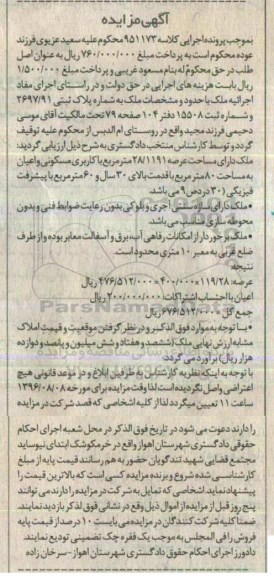 آگهی مزایده
بموجب پرونده اجرایی کلاسه ۹۵۱۱۷۳ محکوم علیه سعید عزیزی فرزند
عوده محکوم است به پرداخت مبلغ ۷۶۰/۰۰۰/۰۰۰ ریال به عنوان اصل
طلب در حق محکوم له بنام مسعود غریبی و پرداخت مبلغ ۱/۵۰۰/۰۰۰
ریال بابت هزینه های اجرایی در حق دولت و در راستای اجرای مفاد
اجرائیه ملک با حدود و مشخصات ملک به شماره پلاک ثبتی ۲۶۹۷/۹۱
و شماره ثبت ۱۵۵۰۸ دفتر ۱۰۴ صفحه ۷۹ تحت مالکیت آقای موسی
دحیمی فرزند مجید واقع در روستای ام الدبس از محکوم علیه توقیف
گردد و توسط کارشناس منتخب دادگستری به شرح ذیل ارزیابی گردید:
ملک دارای مساحت عرصه ۱۱۹۱/۲۸ مترمربع با کاربری مسکونی و اعیان
به مساحت ۸۰ مترمربع با قدمت بالای ۳۰ سال و ۶۰ مترمربع با پیشرفت
فیزیکی (۳۰ درصد) می باشد.
• ملک دارای سازه سنتی آجری و بلوکی بدون رعایت ضوابط فنی و بدون
محوطه سازی مناسب می باشد.
• ملک برخوردار از امکانات رفاهی آب، برق و آسفالت معابر بوده و از طرف
ضلع غربی به معبر ۱۰ متری محدود است.
نتیجه:
عرصه: ۴۷۶/۵۱۲/۰۰۰=۴۰۰/۰۰۰×۱۱۹۱/۲۸ ریال
اعیان با احتساب اشتراکات: ۲۰۰/۰۰۰/۰۰۰ ریال
جمع کل ۶۷۶/۵۱۲/۰۰۰ ریال
• با توجه به موارد فوق الذکر و در نظر گرفتن موقعیت و قیمت املاک
مشابه ارزش نهایی ملک (ششصد و هفتاد و شش میلیون و پانصد و دوازده
هزار ریال) برآورد می گردد.
با توجه به اینکه نظریه کارشناس به طرفین ابلاغ و در موعد قانونی هیچ
اعتراضی واصل نگردیده است لذا وقت مزایده برای مورخه ۱۳۹۶/۰۸/۰۸
ساعت ۱۱ تعیین میگردد لذا از کلیه اشخاصی که قصد شرکت در مزایده
را دارند دعوت می شود در تاریخ فوق الذکر در محل شعبه اجرای احکام
حقوقی دادگستری شهرستان اهواز واقع در خرمکوشک ابتدای نیوساید
مجتمع قضایی شهید تندگویان حضور به هم رسانند قیمت پایه از مبلغ
کارشناسی شده شروع و برنده مزایده کسی است که بالاترین قیمت را
پیشنهاد نماید اشخاصی که تمایل به شرکت در مزایده را دارند می توانند
پنج روز قبل از مزایده از اموال ذیل واقع در نشانی فوق الذکر بازدید نمایند.
ضمنا کلیه شرکت کنندگان در مزایده می بایست ۱۰ درصد از قیمت پایه
فروش را فی المجلس به موجب یک فقره چک تضمینی تودیع نمایند.
دادورز اجرای احکام حقوق دادگستری شهرستان اهواز- سرخان زاده